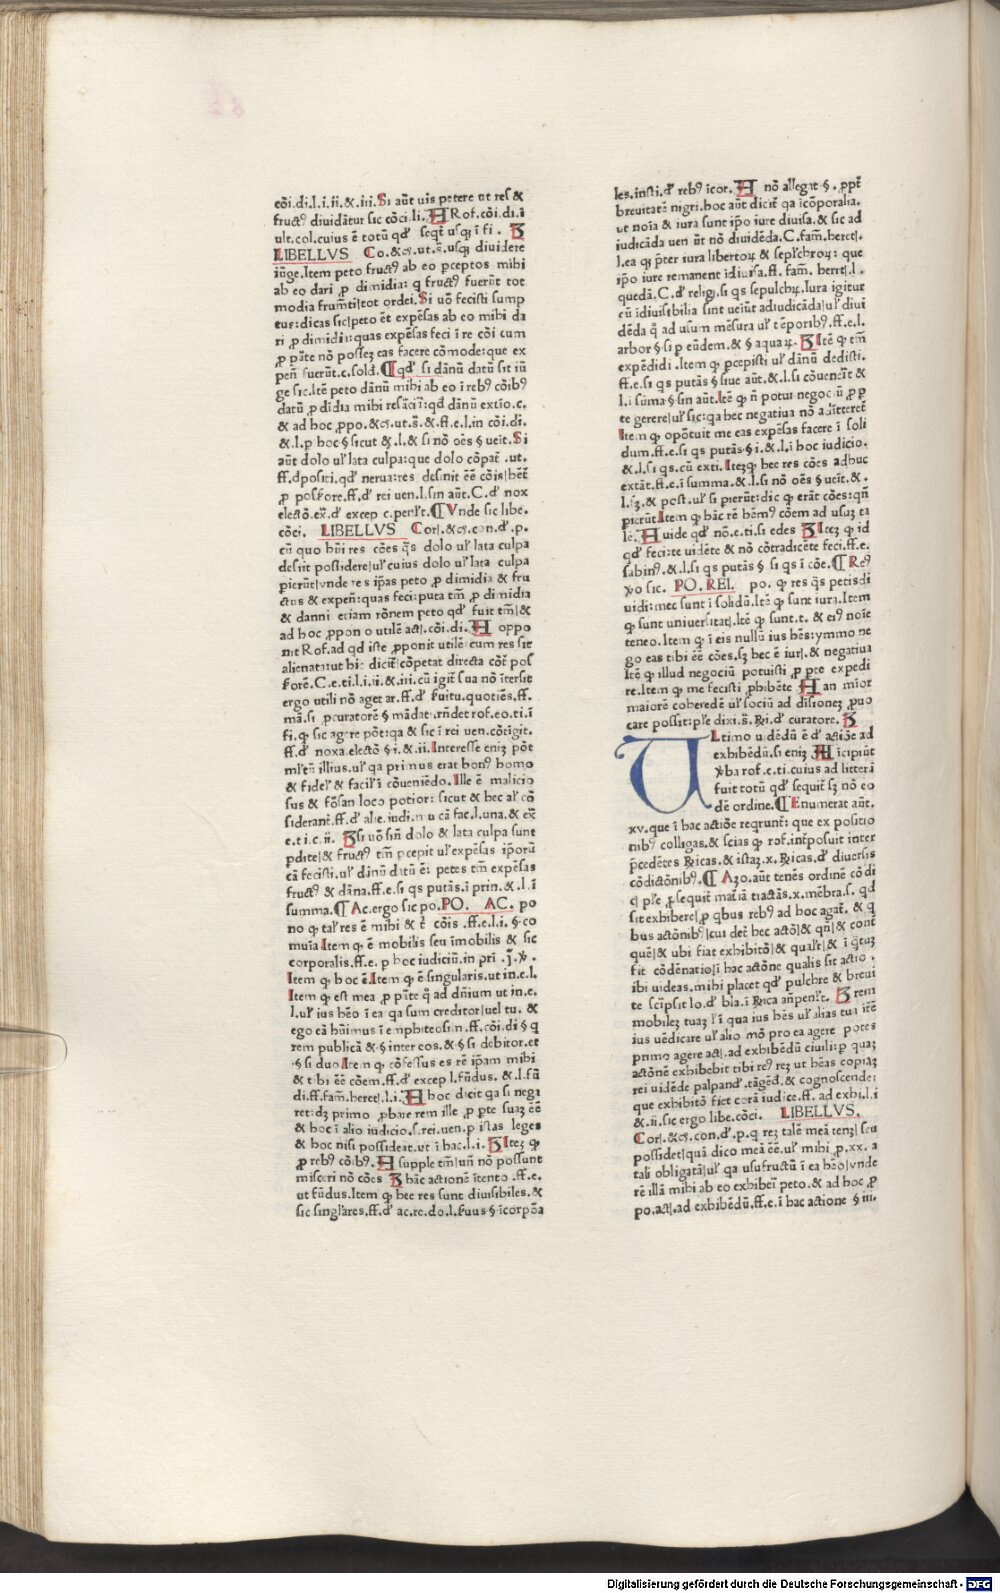 cōi.di.l.i.ii.& .iii.Si aūt uis petere ut res &
fructꝰ diuidātur sic cōci.li. A Rof.cōi.di.ī
ult.col.cuius ē totū qd̓ seqt̄ usqꝫ ī fi . B
LIBELLVS Co.&c̄.ut.s̄.usqꝫ diuidere
iūge.Item peto fructꝰ ab eo pceptos mihi
ab eo dari ꝓ dimidia: q fructꝰ fuerūt tot
modia frumēti|tot ordei.Si uō fecisti sump
tus:dicas sic|peto ēt expēsas ab eo mihi da
ri ꝓ dimidia:quas expēsas feci ī re cōi cum
ꝓ pāte nō possez eas facere cōmode:que ex
pen̄ fuerūt.c.sold. ¶ qd̓ si dānū datū sit iū
ge sic.Itē peto dānū mihi ab eo ī rebꝰ cōibꝰ
datū ꝓ dīdia mihi resāciri:qd̓ dānū extīo.c.
& ad hoc ꝓpo.&c̄.ut.s̄.&.ff.e.l.in cōi.di.
&.l.p hoc § sicut &.l.& si nō oēs § ueit.Si
aūt dolo ul̓ lata culpa:que dolo cōpat̄ .ut.
ff.d̓positi.qd̓ nerua:res desinit ēē cōis|hēt̄
ꝓ possore.ff.d̓ rei uen.l.sin aūt.C.d̓ nox
electō.ex̄.d̓ excep c.penl̓t. ¶ Vnde sic libe.
cōci. LIBELLVS Cor|.&c̄.con.d̓.p.
cū quo hūi res cōes q̄s dolo ul̓ lata culpa
desiit possidere|ul̓ cuius dolo ul̓ lata culpa
pierūt|vnde res ip̄as peto ꝓ dimidia & fru
ctus & expen̄:quas feci:puta tm̄ ꝓ dimidia
& danni etiam rōnem peto qd̓ fuit tm̄|&
ad hoc ꝓpon o utilē act|.cōi.di. A oppo
nit Rof.ad qd iste ꝓponit utilē:cum res sit
alienata:ut hi: dicit̄|cōpetat directa cōt̄ pos
sorē.C.e.ti.l.i.ii.& .iii.cū igit̄ sua nō ītersit
ergo utili nō aget ar.ff.d̓ suitu.quotiēs.ff.
mā.si ꝓcuratorē § mādat:r̄ndet rof.eo.ti.ī
fi.ꝙ sic agere pōt:qa & sic ī rei uen.cōtīgit.
ff.d̓ noxa.electō § i.& .ii.Interesse enīꝫ pōt
ml̓tū illius.ul̓ qa primus erat bonꝰ homo
& fidel̓ & facil̓ ī cōueniēdo.Ille ē malicio
sus & fōsan loco potior: sicut & hec al̓ cō
siderant̄.ff.d̓ alie.iudi.mu cā fac.l.una.& ex̄
e.ti c.ii. B si uō sin̄ dolo & lata culpa sunt
pdite|& fructꝰ tm̄ pcepit ul̓ expēsas ip̄orū
cā fecisti.ul̓ dānū datū ē: petes tm̄ expēsas
fructꝰ & dāna.ff.e.si qs putās.ī prin.&.l.ī
summa. ¶ Ac.ergo sic po. PO. AC. po
no ꝙ tal̓ res ē mihi & t̄ cōis .ff.e.l.i. § co
muīa Item ꝙ ē mobilis seu īmobilis & sic
corporalis.ff.e. p hoc iudiciū.in pri .ī.ꝟ.
Item ꝙ hoc ē.Item ꝙ ē singularis.ut in.e.l.
Item ꝙ est mea ꝓ pāte q̄ ad dn̄ium ut in.e.
l.ul̓ ius hēo ī ea qa sum creditor|uel tu. &
ego cā hūimus ī emphiteosin.ff.cōi.di § q
rem publicā & § inter eos.& § si debitor.et
.§ si duo Item ꝙ cōfessus es rē ip̄am mihi
& tibi ēē cōem.ff.d̓ excep l.fūdus. &.l.fū
di.ff.fam.heret|.l.i. A hoc dicit qa si nega
ret:dꝫ primo ꝓbare rem ille ꝓ pte suaꝫ ēē
& hoc ī alio iudicio.s.rei.uen.p istas leges
& hoc nisi possideat.ut ī hac.l.i. B Iteꝫ ꝙ
ꝓ rebꝰ cōibꝰ. A supple tm̄|un̄ nō possunt
misceri nō cōes B hāc actionē ītento .ff.e.
ut fūdus.Item ꝙ hec res sunt diuisibiles.&
sic singl̓ares.ff.d̓ ac.re.do.l.fuus § īcorpōa
les.insti.d̓ rebꝰ īcor. A nō allegat § . ꝓpt̄
breuitatē nigri.hoc aūt dicit̄ qa īcōporalia.
ut noīa & iura sunt ip̄o iure diuisa.& sic ad
iudicāda uen ūt nō diuidēda.C.fam.heret|.
l.ea q̄ p̄ter iura libertoꝝ & sepl̓chroꝝ: que
ip̄o iure remanent īdiuisa.ff. fam. heret|.l.
quedā.C.d̓ religi.si qs sepulchꝝ. Iura igitur
cū īdiuisibilia sint ueiūt adiudicāda|ul̓ diui
dēda q̄ ad usum mēsura ul̓ tēporibꝰ.ff.e.l.
arbor § si p eūdem.& § aquaꝝ. B Itē ꝙ tm̄
expēdidi .Item ꝙ pcepisti ul̓ dānū dedisti.
ff.e.si qs putās § siue aūt.&.l.si cōueneīt &
l.i suma § sin aūt.Itē ꝙ n̄ potui negociū ꝓp
te gerere|ul̓ sic:qa hec negatiua nō amitteret̄
Item ꝙ opōtuit me eas expēsas facere ī soli
dum.ff.e.si qs putās § i.&.l.i hoc iudicio.
&.l.si qs.cū exti.Itezꝙ hec res cōes adhuc
extāt.ff.e.i summa.&.l.si nō oēs § ueīt.&.
l.iꝫ.& post.ul̓ si pierūt:dic ꝙ erāt cōes:qn̄
pierūt Item ꝙ hāc rē hēmꝰ cōem ad usuꝫ ta
lē. A uide qd̓ nō.e.ti.si edes B Iteꝫ ꝙ id
qd̓ feci:te uidēte & nō cōtradicēte feci.ff.e.
sabinꝰ.&.l.si qs putās § si qs ī cōe. ¶ Reꝰ
ꝟo sic. PO. REI. po. ꝙ res q̄s petisdi
uidi:mee sunt ī solidū.Itē ꝙ sunt iura.Item
ꝙ sunt uniuersitat|.Itē ꝙ sunt.t. & eiꝰ noīe
teneo.Item ꝙ ī eis nullū ius hēs:ymmo ne
go eas tibi ēē cōes.sꝫ hec ē iur|.& negatiua
Itē ꝙ illud negociū potuisti ꝓ pte expedi
re.Item ꝙ me fecisti ꝓhibēte A an mīor
maiorē coheredē ul̓ sociū ad diuisioneꝫ ꝓuo
care possit:ple dixi.s̄.ꝶi.d̓ curatore. B
Ultimo uidēdū ē d̓ actiōe ad
exhibēdū.si enīꝫ A īcipiūt
ꝟba rof.e.ti.cuius ad litterā
fuit totū qd̓ sequit̄ sꝫ nō eo
dē ordine. ¶ Enumerat aūt.
xv.que ī hac actiōe reqrunt̄: que ex positio
nibꝰ colligas.& scias ꝙ rof.int̄posuit inter
p̄cedētes ꝶicas.& istaꝫ.x.ꝶicas.d̓ diuersis
cōdictōnibꝰ. ¶ Azo.aūt tenēs ordinē cōdi
c| ple ꝓsequit̄ matiā tractās.x.mēbra.s. qd
sit exhibere|ꝓ qbus rebꝰ ad hoc agat̄. & q
bus actōnibꝰ|cui det̄ hec actō|& qn̄|& cont̄
quē|& ubi fiat exhibitō|& qual̓r|& ī q̄tuꝫ
fit cōdēnatio|ī hac actōne qualis sit actio .
ibi uideas.mihi placet qd̓ pulchre & breui
te sc̄ipsit lo.d̓ bla.ī ꝶica an̄penl̓t. B rem
mobileꝫ tuaꝫ l̓ ī qua ius hēs ul̓ alias tua itē
ius uēdicare ul̓ alio mō pro ea agere potes
primo agere act|.ad exhibēdū ciuili:p quaꝫ
actōnē exhibebit tibi reꝰ reꝫ ut hēas copiaꝫ
rei uidēde palpand̓.tāgēd̓.& cognoscende:
que exhibitō fiet corā iudice.ff.ad exhi.l.i
&.ii.sic ergo libe.cōci. LIBELLVS.
Cor|.&c̄.con.d̓.p.q reꝫ talē meā tenꝫ| seu
possidet|quā dico meā ēē.ul̓ mihi p.xx. a
tali obligatā|ul̓ qa usufructū ī ea hēo|vnde
rē illā mihi ab eo exhiberī peto.& ad hoc ꝓ
po.act|.ad exhibēdū.ff.e.ī hac actione § iii.
Digitalisierung gefördert durch die Deutsche Forschungsgemeinschaft - DFG